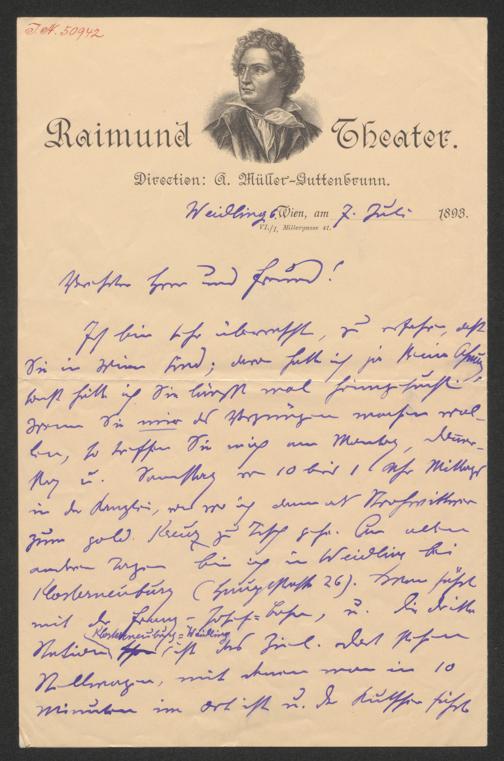 J.N. 50942
Raimund Theater.
Direction: A. Müller-Guttenbrunn.
Weidling b. Wien, am 7. Juli 1893.
VI./1, Millergasse 41.
Verehrter Herr und Freund!
Ich bin sehr überrascht, zu erfahren, daß
Sie in Wien sind; davon hatte ich ja keine Ahnung
sonst hätte ich Sie längst mal heimgesucht!
Wenn Sie mir das Vergnügen machen wol-
len, so treffen Sie mich am Montag, Donner-
stag u. Samstag von 10 bis 1 Uhr Mittags
in der Kanzlei, von wo ich dann als Strohwittwer
zum gold. Kreuz zu Tisch gehe. An allen
andern Tagen bin ich in Weidling bei
Klosterneuburg (Hauptstraße 26). Man fährt
mit der Franz-Josef-Bahn, u. die dritte
Klosterneuburg-Weidling
Station ist das Ziel. Dort stehen
Stellwagen, mit denen man in 10
Minuten im Ort ist u. der Kutscher führt